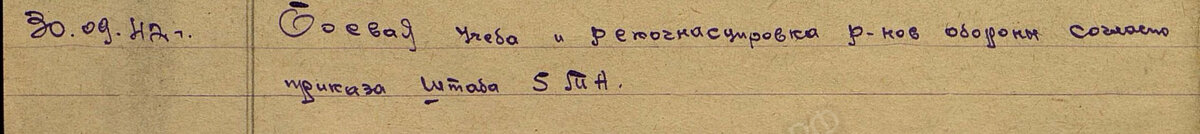 30.09.42 г. Боевая учеба и рекогнасцировка р-нов обороны согласно
приказа штаба 5 ТА.